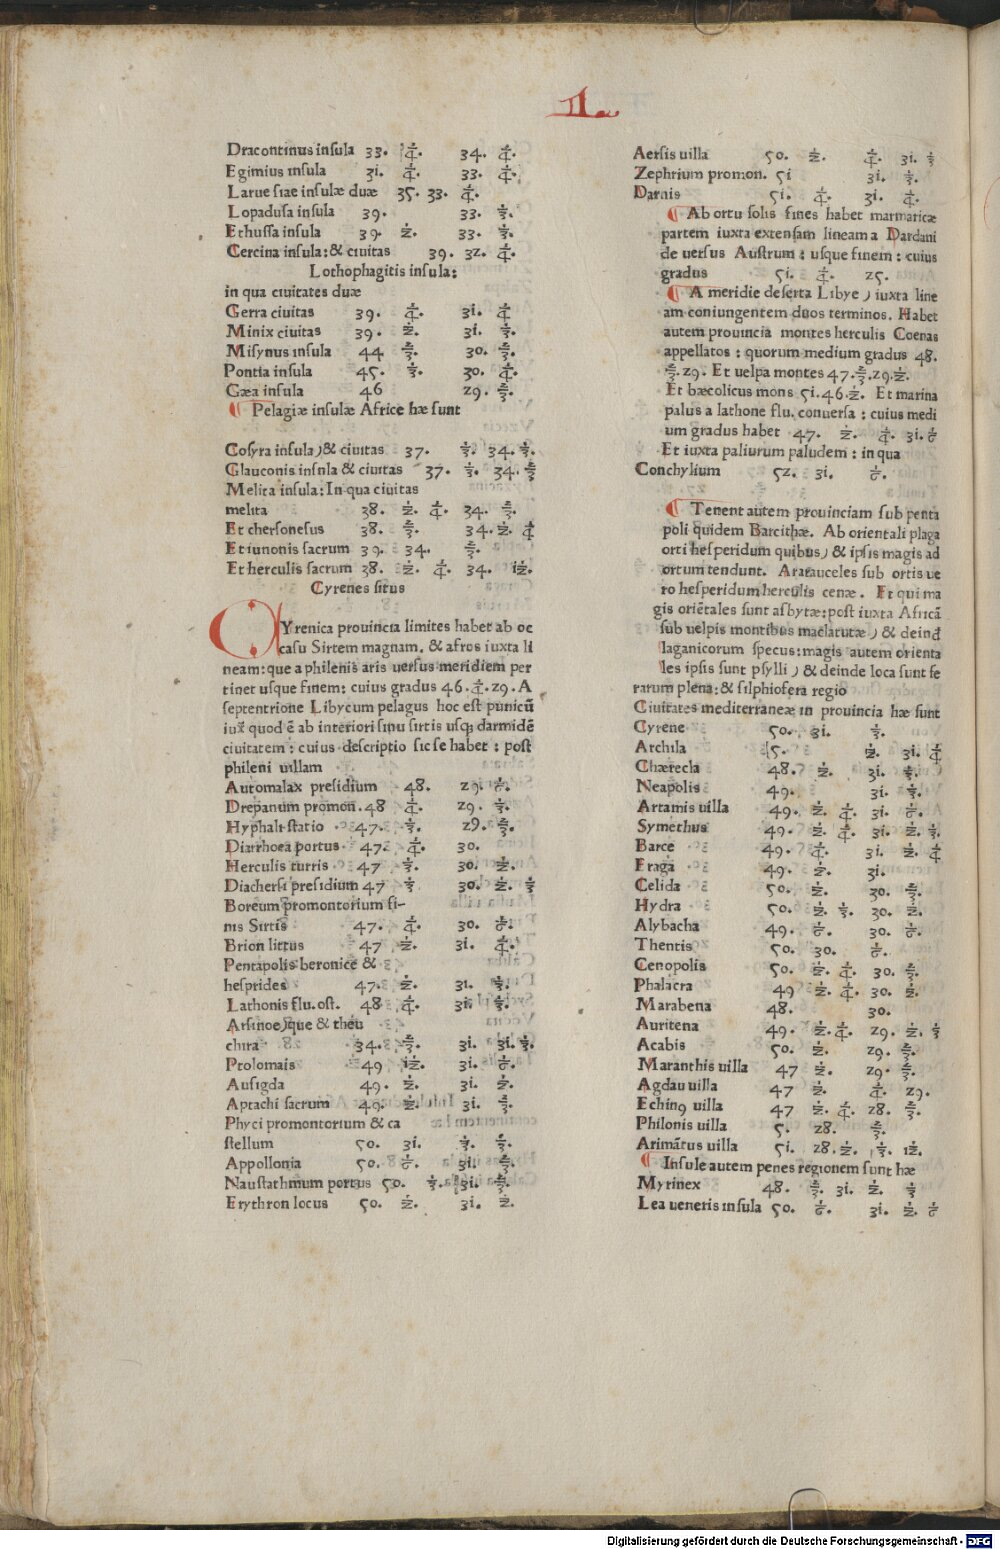 II.
Dracontinus insula 33. ÷4. 34. ÷4.
Egimius insula 31. ÷4. 33. ÷4.
Larue siae insulæ duæ 35. 33. ÷4.
Lopadusa insula 39. 33. ÷3.
Ethussa insula 39. ÷2. 33. ÷3.
Cercina insula: & ciuitas 39. 32. ÷4.
Lothophagitis insula:
in qua ciuitates duæ
Gerra ciuitas 39. ÷4. 31. ÷4
Minix ciuitas 39. ÷2. 31. ÷3.
Misynus insula 44 30.
Pontia insula 45. ÷3. 30. ÷4.
Gæa insula 46 29.
¶ Pelagiæ insulæ Africe hæ sunt
Cosyra insula) & ciuitas 37. ÷3. 34. ÷3.
Glauconis insnla & ciuitas 37. ÷3. 34.
Melita insula: In qua ciuitas
melita 38. ÷2. ÷4. 34.
Et chersonesus 38. 34. ÷2. ÷4
Et iunonis sacrum 39. 34.
Et herculis sacrum 38. ÷2. ÷4. 34. 12.
Cyrenes situs
CYrenica prouincia limites habet ab oc
casu Sirtem magnam. & afros iuxta li
neam: que a philenis aris uersus meridiem per
tinet usque finem: cuius gradus 46. ÷4. 29. A
septentrione Libycum pelagus hoc est punicū
iux̄ quod ē ab interiori sinu sirtis usqꝫ darmidē
ciuitatem: cuius descriptio sic se habet: post
phileni uillam
Automalax presidium 48. 29. ÷6.
Drepanum promon. 48 ÷4. 29. ÷3.
Hyphali statio 47. ÷3. 29.
Diarrhoea portus 47. ÷4. 30.
Herculis turris 47 ÷3. 30. ÷2.
Diachersi presidium 47 ÷3 30. ÷2. ÷3
Boreum promontorium fi-
nis Sirtis 47. ÷4. 30. ÷6.
Brion littus 47 ÷2. 31. ÷4.
Pentapolis beronice &
hesprides 47. ÷2. 31. ÷3.
Lathonis flu. ost. 48 ÷4. 31. ÷3.
Arsinoe) que & theu
chira 34. 31. 31. ÷3.
Ptolomais 49 12. 31. ÷6.
Ausigda 49. ÷2. 31. ÷2.
Aptachi sacrum 49. ÷2. 31. ÷3.
Phyci promontorium & ca
stellum 50. 31. ÷3. ÷3.
Appollonia 50. ÷6. 31.
Naustathmum portus 50. ÷3. 31.
Erythron locus 50. ÷2. 31. ÷2.
Aersis uilla 50. ÷2. ÷4. 31. ÷3
Zephrium promon. 51 31. ÷3.
Darnis 51. ÷4. 31. ÷4.
¶ Ab ortu solis fines habet marmaricæ
partem iuxta extensam lineam a Dardani
de uersus Austrum: usque finem: cuius
gradus 51. ÷4. 25.
¶ A meridie deserta Libye) iuxta line
am coniungentem duos terminos. Habet
autem prouincia montes herculis Coenas
appellatos: quorum medium gradus 48.
. 29. Et uelpa montes 47. . 29. ÷2.
Et bæcolicus mons 51. 46. ÷2. Et marina
palus a lathone flu. conuersa: cuius medi
um gradus habet 47. ÷2. ÷4. 31. ÷6
Et iuxta paliurum paludem: in qua
Conchylium 52. 31. ÷6.
¶ Tenent autem prouinciam sub penta
poli quidem Barcithæ. Ab orientali plaga
orti hesperidum quibus) & ipsis magis ad
ortum tendunt. Araraucеles sub ortis ue
ro hesperidum herculis cenæ. Et qui ma
gis oriētales sunt asbytæ: post iuxta Africā
sub uelpis montibus maelatutæ) & deind
laganicorum specus: magis autem orienta
les ipsis sunt psylli) & deinde loca sunt fe
rarum plena: & silphiofera regio
Ciuitates mediterraneæ in prouincia hæ sunt
Cyrene 50. 31. ÷3.
Archila 5. ÷2. 31. ÷4
Chærecla 48. ÷2. 31. ÷3.
Neapolis 49. 31. ÷3.
Artamis uilla 49. ÷2. ÷4. 31. ÷6.
Symethus 49. ÷2. ÷4. 31. ÷2. ÷3.
Barce 49. ÷4. 31. ÷2. ÷4
Eraga 49. ÷2. 31.
Celida 50. ÷2. 30.
Hydra 50. ÷2. ÷3. 30. ÷2.
Alybacha 49. ÷6. 30. ÷6.
Thentis 50. 30. ÷6.
Cenopolis 50. ÷2. ÷4. 30.
Phalacra 49 ÷2. ÷4. 30. ÷2.
Marabena 48. 30.
Auritena 49. ÷2. ÷4. 29. ÷2. ÷3
Acabis 50. ÷2. 29.
Maranthis uilla 47 ÷2. 29.
Agdau uilla 47 ÷2. ÷4. 29.
Eching uilla 47 ÷2. ÷4. 28.
Philonis uilla 5. 28.
Arimātus uilla 51. 28. ÷2. ÷3. 12.
¶ Insule autem penes regionem sunt hæ
Myrinex 48. 31. ÷2. ÷3
Lea ueneris insula 50. ÷6. 31. ÷2. ÷6
Digitalisierung gefördert durch die Deutsche Forschungsgemeinschaft - DFG